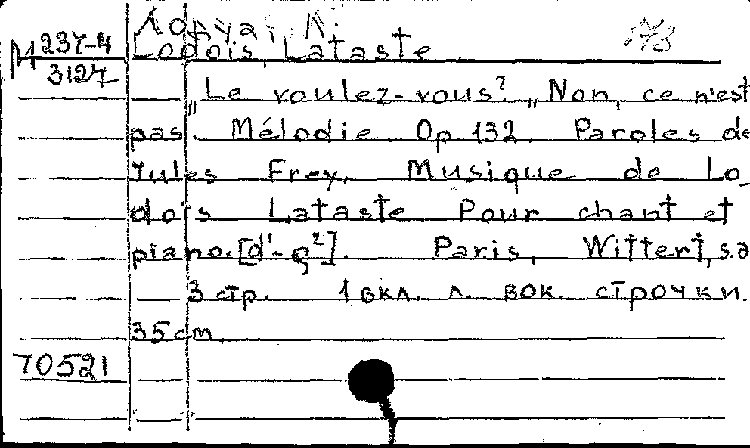 М 237-4
3127
Lodois Lataste
„Le voulez-vous? „Non, ce n'est
pas. Mélodie Op 132. Paroles de
Jules Frey. Musique de Lo_
doïs Lataste Pour chant et
piano. [d'-g²]. Paris, Wittert, s.a
3 стр. 1 вкл. л. вок. строчки.
35 cm
70521